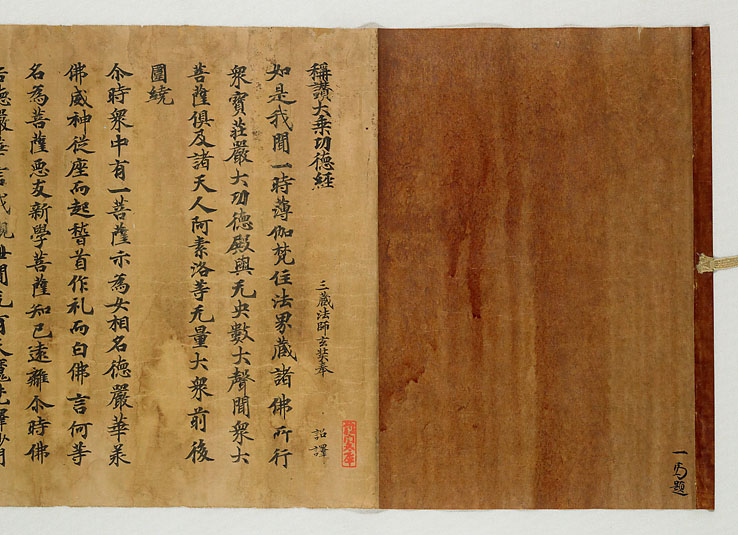 一題
稱讚大乗功德経
三藏法師玄奘奉 詔譯
如是我聞一時薄伽梵住法界藏諸佛所行
衆寶莊嚴大功德殿與无央數大聲聞衆大
菩薩俱及諸天人阿素洛等无量大衆前後
圍繞
尒時衆中有一菩薩示為女相名德嚴華承
佛威神従座而起稽首作礼而白佛言何等
名為菩薩惡友新學菩薩知已遠離尒時佛
告德嚴華言我觀世間无有天魔梵釋沙門